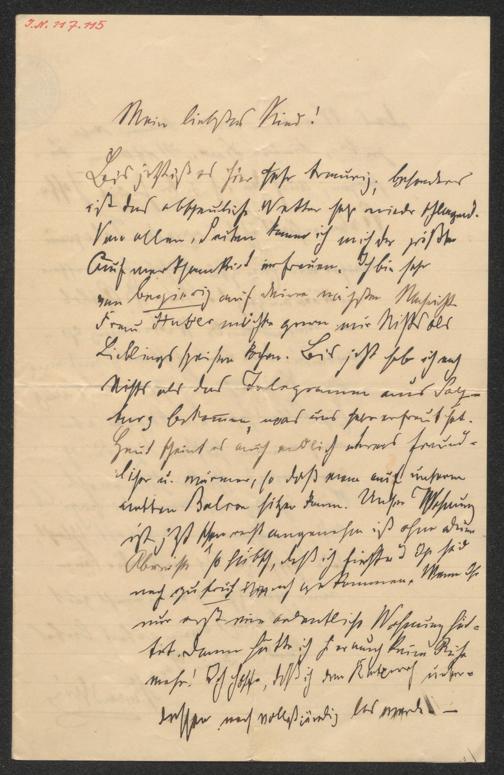 J.N. 117.115
Mein liebstes Kind!
Bis jetzt ist es hier sehr traurig, besonders
ist das abscheuliche Wetter sehr niederschlagend.
Von allen Seiten kann ich mich der größten
Aufmerksamkeit erfreuen. Ich bin sehr
neugierig auf deine nächste Nachricht
Frau möchte gern mir nichts als
Lieblingsspeisen kochen. Bis jetzt habe ich noch
nichts als das Telegramm aus Salz-
burg bekommen, was uns sehr erfreut hat.
Heut scheint es auch endlich etwas freund-
licher u. wärmer, so daß man auf unserem
netten Balcon sitzen kann. Unsere Wohnung
ist jetzt schon recht angenehm ist ohne
so hübsch, daß ich finde Ihr seid
noch zu früh gekommen. Wenn Ihr
nur erst eine ordentliche Wohnung hät-
tet, dann hätte ich darauf keine Ruhe
mehr! Ich hoffe, daß ich den Katarrh unter-
dessen noch vollständig los werde. —